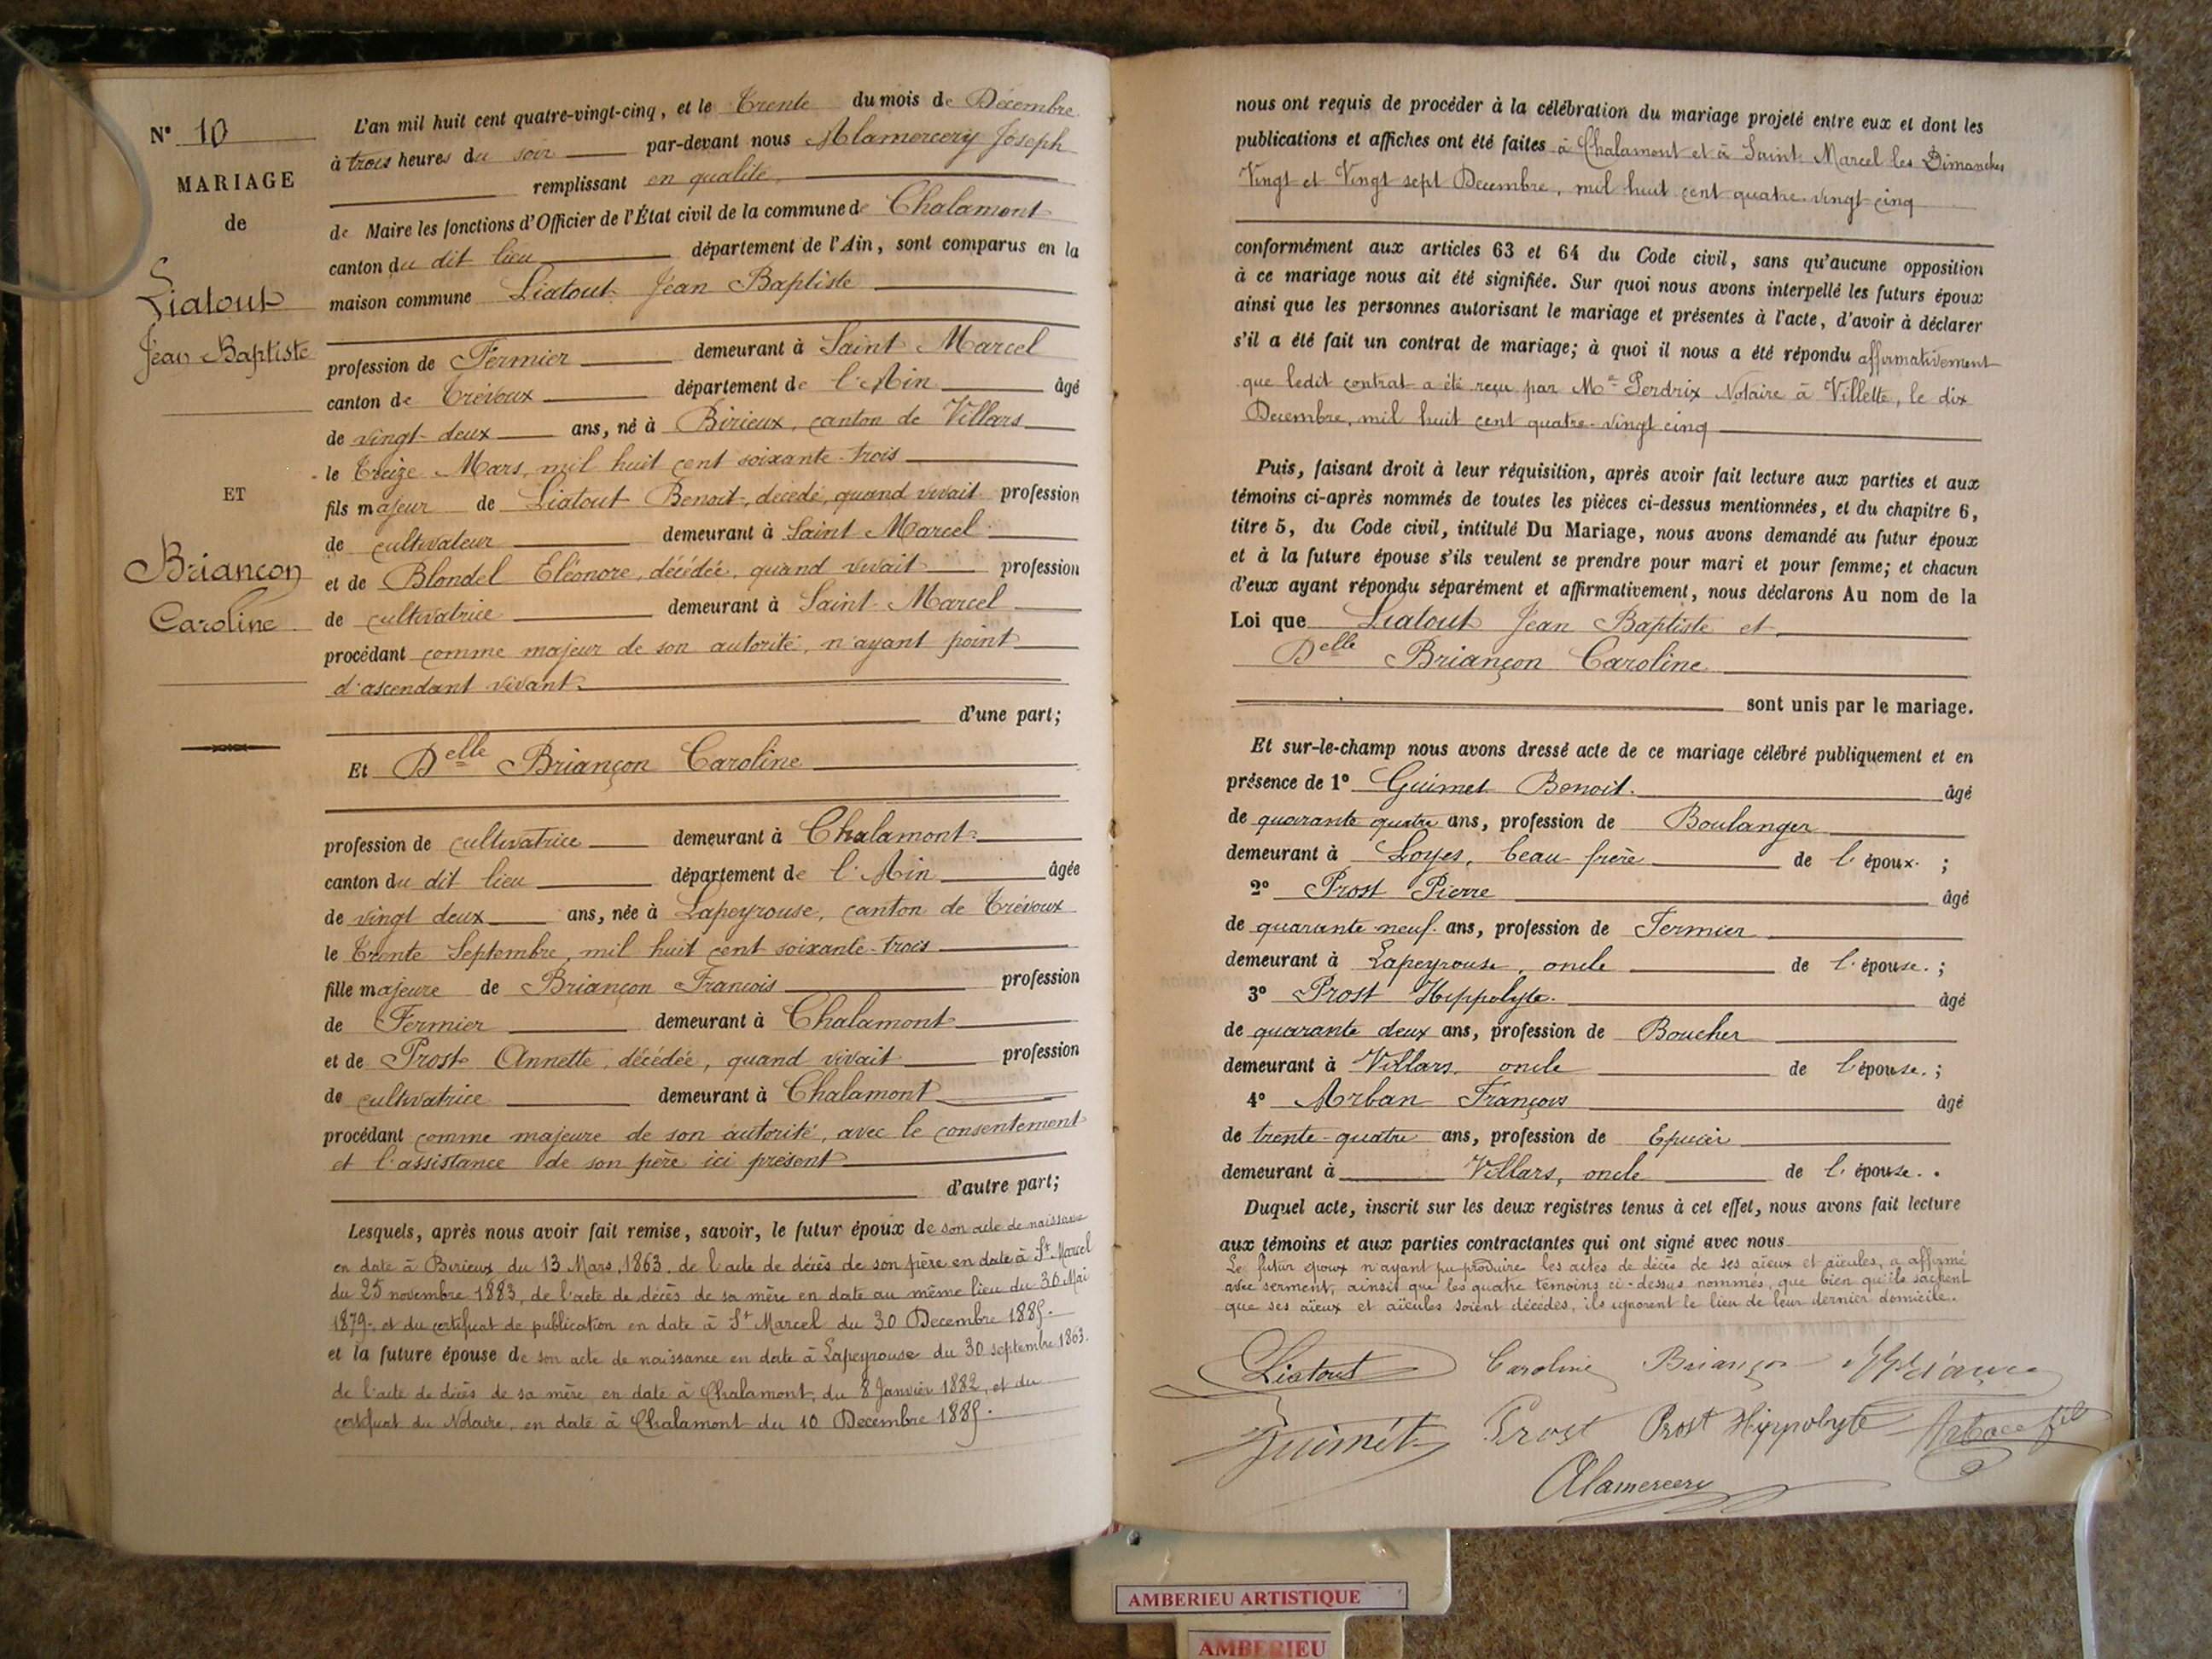 N° 10
MARIAGE
de
Liatout
Jean Baptiste
ET
Briançon
Caroline
L'an mil huit cent quatre-vingt-cinq, et le Trente du mois de Décembre
à trois heures du soir par-devant nous Alamercery Joseph
remplissant en qualité
de Maire les fonctions d'Officier de l'État civil de la commune de Chalamont
canton du dit lieu département de l'Ain, sont comparus en la
maison commune Liatout Jean Baptiste
profession de Fermier demeurant à Saint Marcel
canton de Trévoux département de l'Ain âgé
de vingt-deux ans, né à Birieux, canton de Villars
le Treize Mars, mil huit cent soixante-trois
fils majeur de Liatout Benoit, décédé, quand vivait profession
de cultivateur demeurant à Saint Marcel
et de Blondel Eléonore, décédée, quand vivait profession
de cultivatrice demeurant à Saint Marcel
procédant comme majeur de son autorité, n'ayant point
d'ascendant vivant.
d'une part;
Et Delle Briançon Caroline
profession de cultivatrice demeurant à Chalamont
canton du dit lieu département de l'Ain âgée
de vingt deux ans, née à Lapeyrouse, canton de Trévoux
le Trente Septembre, mil huit cent soixante-trois
fille majeure de Briançon Francois profession
de Fermier demeurant à Chalamont
et de Prost Annette, décédée, quand vivait profession
de cultivatrice demeurant à Chalamont
procédant comme majeure de son autorité, avec le consentement
et l'assistance de son père ici présent
d'autre part;
Lesquels, après nous avoir fait remise, savoir, le futur époux de son acte de naissance
en date à Birieux du 13 Mars, 1863, de l'acte de décès de son père en date à St Marcel
du 25 novembre 1883, de l'acte de décès de sa mère en date au même lieu du 30 Mai
1879, et du certificat de publication en date à St Marcel du 30 Decembre 1885.
et la future épouse de son acte de naissance en date à Lapeyrouse du 30 septembre 1863.
de l'acte de décès de sa mère en date à Chalamont, du 8 Janvier 1882, et du
certificat du Notaire, en date à Chalamont du 10 Decembre 1885.
nous ont requis de procéder à la célébration du mariage projeté entre eux et dont les
publications et affiches ont été faites à Chalamont et à Saint Marcel les Dimanches
Vingt et Vingt sept Decembre, mil huit cent quatre-vingt-cinq
conformément aux articles 63 et 64 du Code civil, sans qu'aucune opposition
à ce mariage nous ait été signifiée. Sur quoi nous avons interpellé les futurs époux
ainsi que les personnes autorisant le mariage et présentes à l'acte, d'avoir à déclarer
s'il a été fait un contrat de mariage; à quoi il nous a été répondu affirmativement
que ledit contrat a été reçu par Me Perdrix Notaire à Villette, le dix
Decembre, mil huit cent quatre-vingt cinq
Puis, faisant droit à leur réquisition, après avoir fait lecture aux parties et aux
témoins ci-après nommés de toutes les pièces ci-dessus mentionnées, et du chapitre 6,
titre 5, du Code civil, intitulé Du Mariage, nous avons demandé au futur époux
et à la future épouse s'ils veulent se prendre pour mari et pour femme; et chacun
d'eux ayant répondu séparément et affirmativement, nous déclarons Au nom de la
Loi que Liatout Jean Baptiste et
Delle Briançon Caroline
sont unis par le mariage.
Et sur-le-champ nous avons dressé acte de ce mariage célébré publiquement et en
présence de 1° Guimet Benoit. âgé
de quarante quatre ans, profession de Boulanger
demeurant à Loyes, beau-frère de l'époux ;
2° Prost Pierre âgé
de quarante neuf ans, profession de Fermier
demeurant à Lapeyrouse, oncle de l'épouse. ;
3° Prost Hippolyte. âgé
de quarante deux ans, profession de Boucher
demeurant à Villars, oncle de l'épouse. ;
4° Arban François âgé
de trente-quatre ans, profession de Epicier
demeurant à Villars, oncle de l'épouse. .
Duquel acte, inscrit sur les deux registres tenus à cet effet, nous avons fait lecture
aux témoins et aux parties contractantes qui ont signé avec nous
Le futur époux n'ayant pu produire les actes de décès de ses aïeux et aïeules, a affirmé
avec serment, ainsi que les quatre temoins ci-dessus nommés, que bien qu'ils sachent
que ses aïeux et aïeules soient décédés, ils ignorent le lieu de leur dernier domicile.
Liatout Caroline Briançon
Guimet Prost Prost Hippolyte
Alamercery
AMBERIEU ARTISTIQUE
AMBERIEU